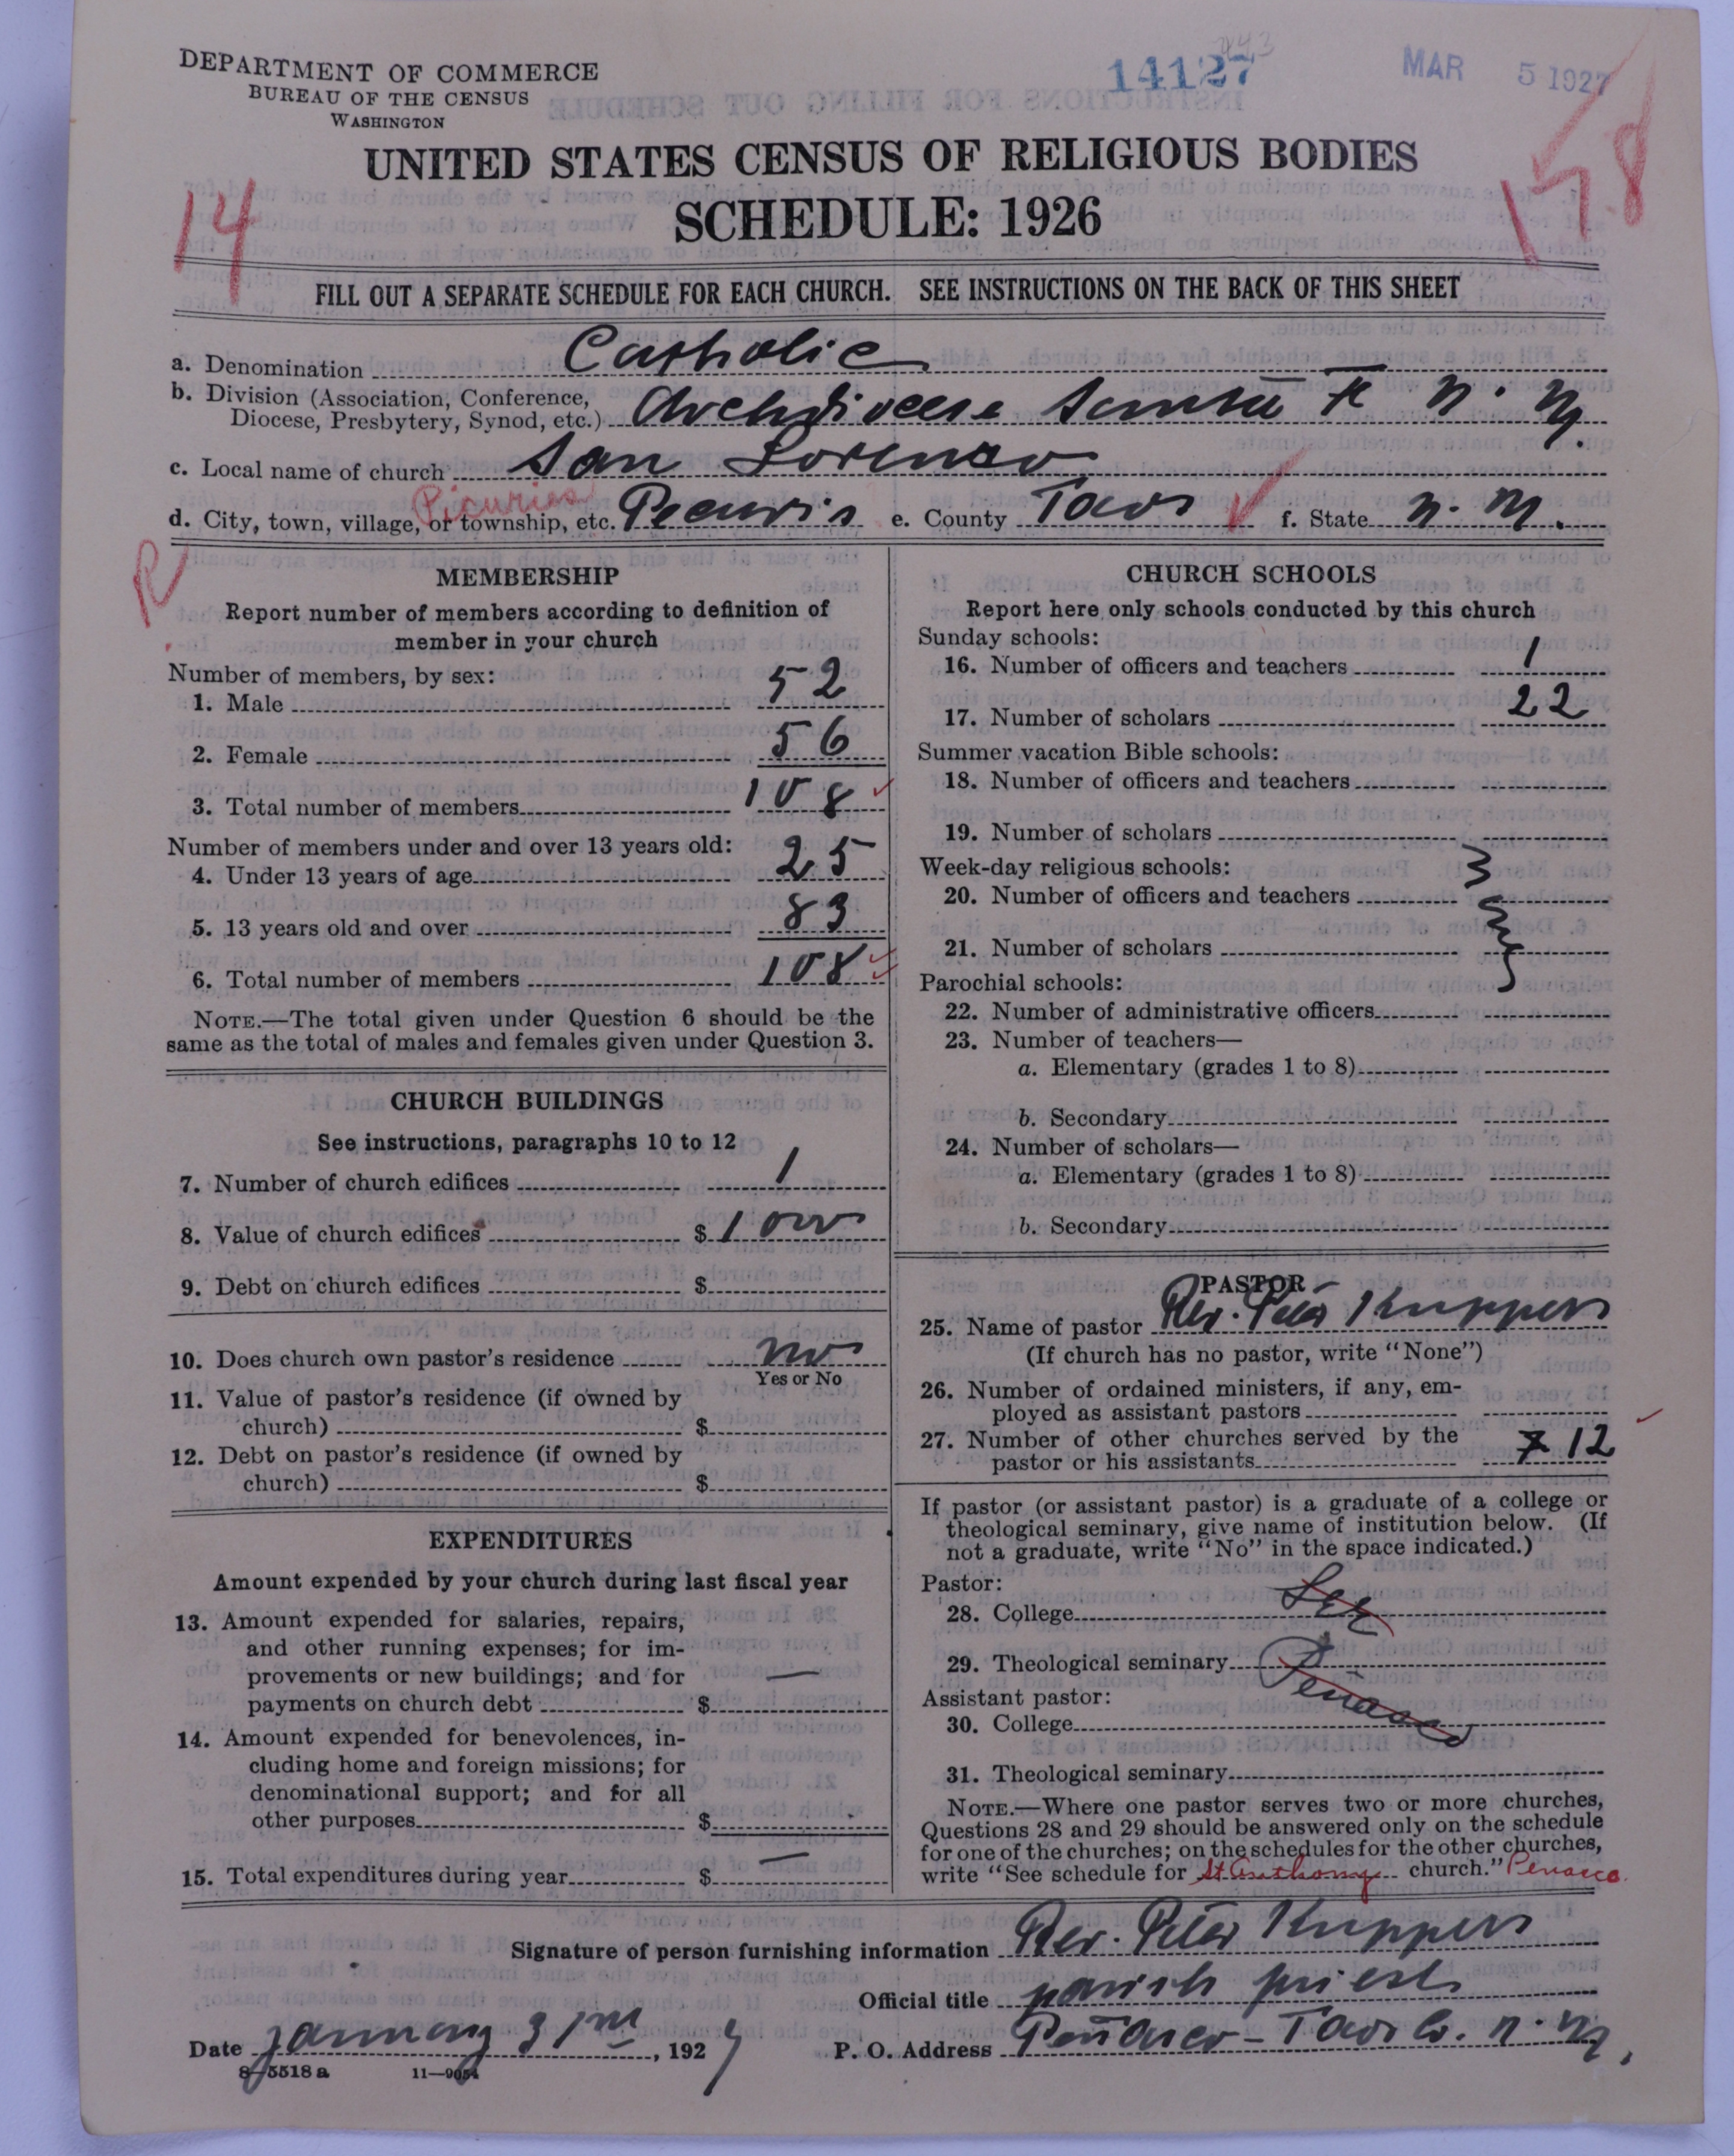 DEPARTMENT OF COMMERCE
BUREAU OF THE CENSUS
WASHINGTON
14127
MAR 5 1927
UNITED STATES CENSUS OF RELIGIOUS BODIES
SCHEDULE: 1926
14
158
FILL OUT A SEPARATE SCHEDULE FOR EACH CHURCH. SEE INSTRUCTIONS ON THE BACK OF THIS SHEET
a. Denomination Catholic
b. Division (Association, Conference,
Diocese, Presbytery, Synod, etc.) Archdiocese Santa Fe N. M.
c. Local name of church San Lorenzo
Picuries
d. City, town, village, or township, etc. Pecuris e. County Taos f. State N. M.
R
MEMBERSHIP
Report number of members according to definition of
member in your church
Number of members, by sex:
1. Male 52
2. Female 56
3. Total number of members 108
Number of members under and over 13 years old:
4. Under 13 years of age 25
5. 13 years old and over 83
6. Total number of members 108
NOTE.—The total given under Question 6 should be the
same as the total of males and females given under Question 3.
CHURCH BUILDINGS
See instructions, paragraphs 10 to 12
7. Number of church edifices 1
8. Value of church edifices $ 1000
9. Debt on church edifices $
10. Does church own pastor's residence no
Yes or No
11. Value of pastor's residence (if owned by
church) $
12. Debt on pastor's residence (if owned by
church) $
EXPENDITURES
Amount expended by your church during last fiscal year
13. Amount expended for salaries, repairs,
and other running expenses; for im-
provements or new buildings; and for
payments on church debt $ —
14. Amount expended for benevolences, in-
cluding home and foreign missions; for
denominational support; and for all
other purposes $
15. Total expenditures during year $ —
CHURCH SCHOOLS
Report here only schools conducted by this church
Sunday schools:
16. Number of officers and teachers 1
17. Number of scholars 22
Summer vacation Bible schools:
18. Number of officers and teachers
19. Number of scholars
Week-day religious schools:
20. Number of officers and teachers
21. Number of scholars
Parochial schools:
22. Number of administrative officers
23. Number of teachers—
a. Elementary (grades 1 to 8)
b. Secondary
24. Number of scholars—
a. Elementary (grades 1 to 8)
b. Secondary
PASTOR
25. Name of pastor Rev. Peter Kuppers
(If church has no pastor, write "None")
26. Number of ordained ministers, if any, em-
ployed as assistant pastors
27. Number of other churches served by the
pastor or his assistants 12
If pastor (or assistant pastor) is a graduate of a college or
theological seminary, give name of institution below. (If
not a graduate, write "No" in the space indicated.)
Pastor:
28. College See
29. Theological seminary Penasco
Assistant pastor:
30. College
31. Theological seminary
NOTE.—Where one pastor serves two or more churches,
Questions 28 and 29 should be answered only on the schedule
for one of the churches; on the schedules for the other churches,
write "See schedule for St Anthony church." Penasco.
Signature of person furnishing information Rev. Peter Kuppers
Official title parish priest
Date January 31st, 1927 P. O. Address Peñasco - Taos Co. N. M.
8-5518 a 11-9054